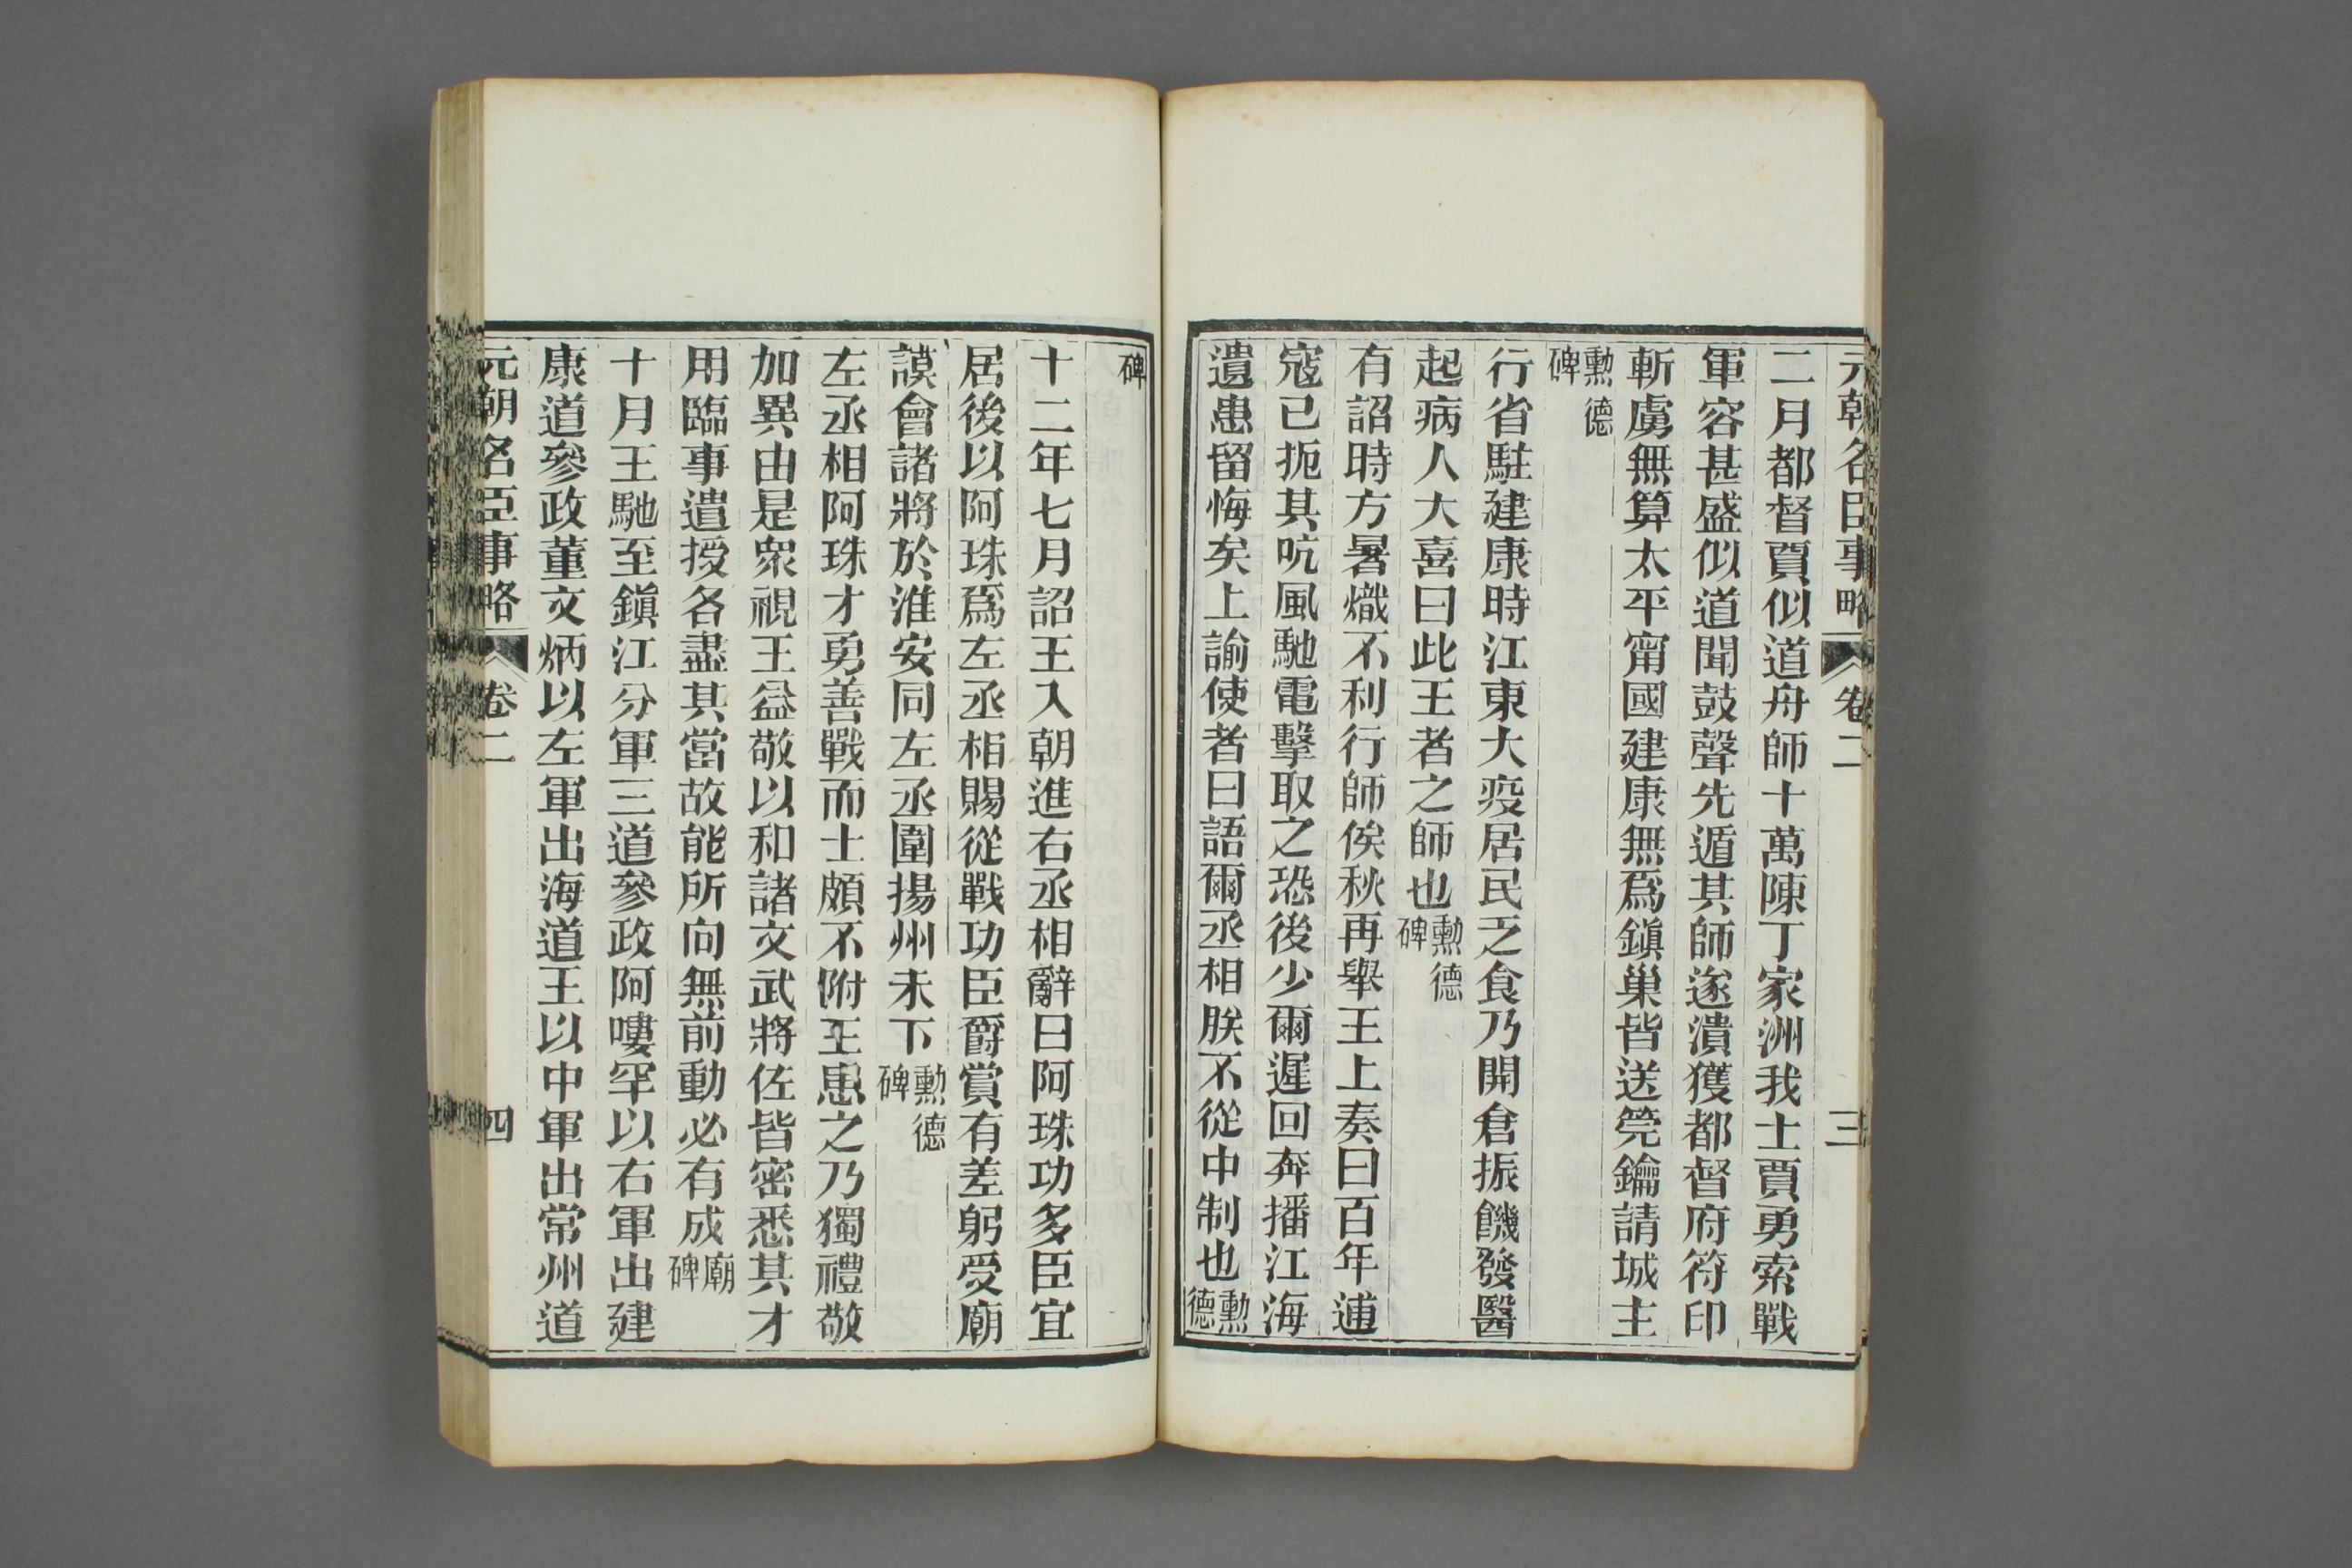 元朝名臣事略 卷二 三
二月都督賈似道舟師十萬陳丁家洲我士賈勇索戰
軍容甚盛似道聞鼓聲先遁其師遂潰獲都督府符印
斬虜無算太平甯國建康無爲鎭巢皆送筦鑰請城主
勳德碑
行省駐建康時江東大疫居民乏食乃開倉振饑發醫
起病人人大喜曰此王者之師也勳德碑
有詔時方暑熾不利行師俟秋再舉王上奏曰百年逋
寇已扼其吭風馳電擊取之恐後少爾遲回奔播江海
遺患留悔矣上諭使者曰語爾丞相朕不從中制也勳德
碑
十二年七月詔王入朝進右丞相辭曰阿珠功多臣宜
居後以阿珠爲左丞相賜從戰功臣爵賞有差躬受廟
謨會諸將於淮安同左丞圍揚州未下勳德碑
左丞相阿珠才勇善戰而士頗不附王患之乃獨禮敬
加異由是衆視王益敬以和諸文武將佐皆密悉其才
用臨事遣授各盡其當故能所向無前動必有成廟碑
十月王馳至鎭江分軍三道參政阿嘍罕以右軍出建
康道參政董文炳以左軍出海道王以中軍出常州道
元朝名臣事略 卷二 四